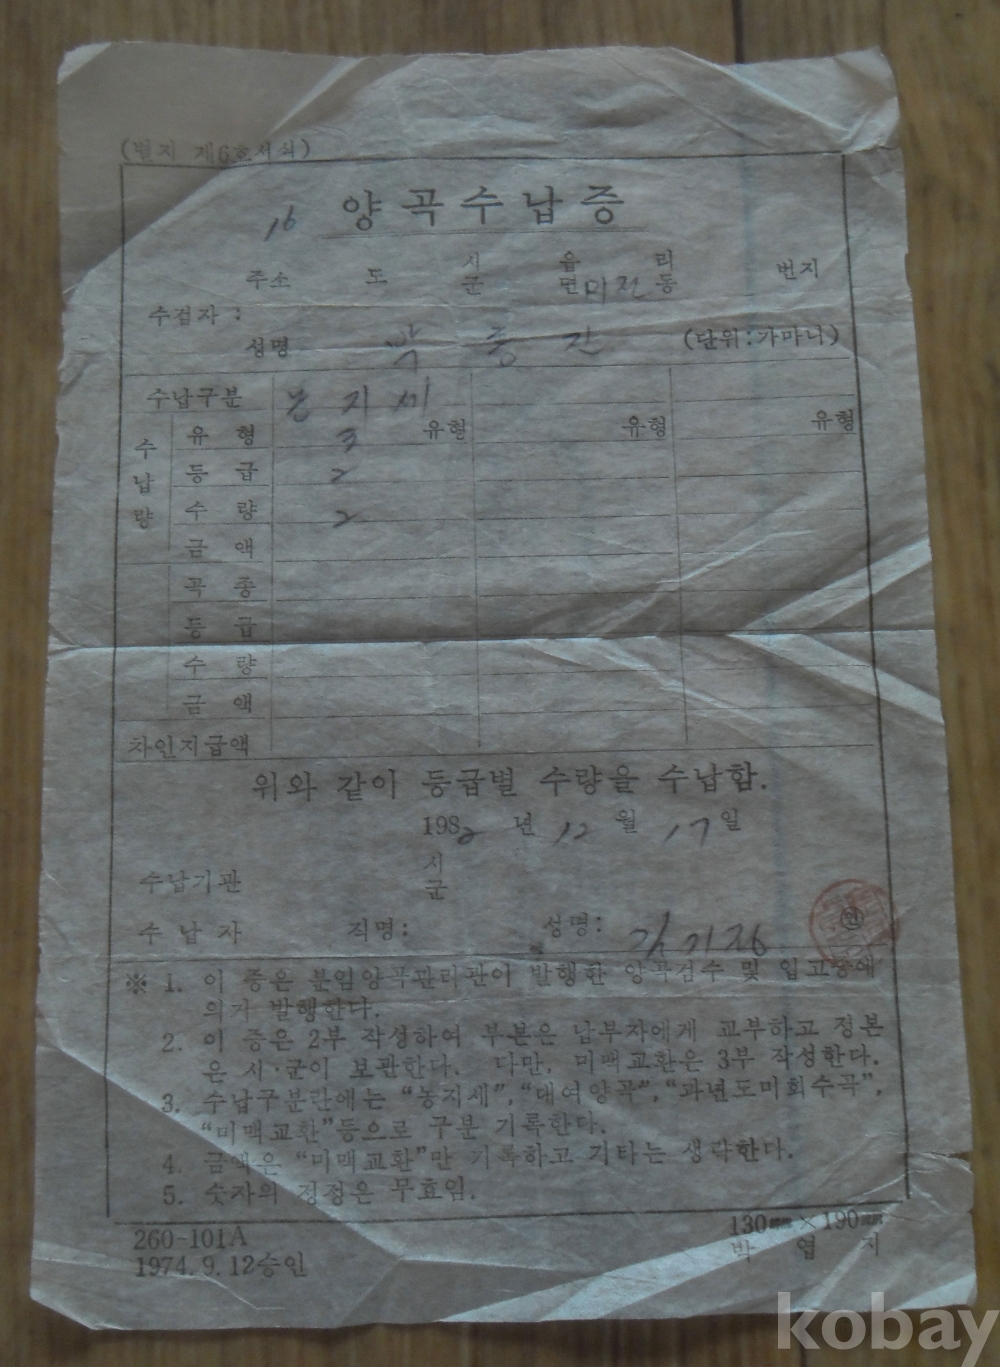 (별지 제6호서식)
16 양곡수납증
시 읍 리
주소 도 군 면 미전 동 번지
수검자 :
성명 박 종 간 (단위:가마니)
수납구분 농지세
수납량
유형 3 유형 유형 유형
등급 2
수량 2
금액
곡종
등급
수량
금액
차인지급액
위와 같이 등급별 수량을 수납함.
1982 년 12 월 17일
시
수납기관 군
수납자 직명: 성명: 인
※ 1. 이 증은 분임양곡관리관이 발행한 양곡검수 및 입고증에
의거 발행한다.
2. 이 증은 2부 작성하여 부본은 납부자에게 교부하고 정본
은 시·군이 보관한다. 다만, 미맥교환은 3부 작성한다.
3. 수납구분란에는 “농지세”, “대여양곡”, “과년도미회수곡”,
“미맥교환”등으로 구분 기록한다.
4. 금액은 “미맥교환”만 기록하고 기타는 생략한다.
5. 숫자의 정정은 무효임.
260-101A 130㎜×190㎜
1974.9.12승인 박엽지
kobay